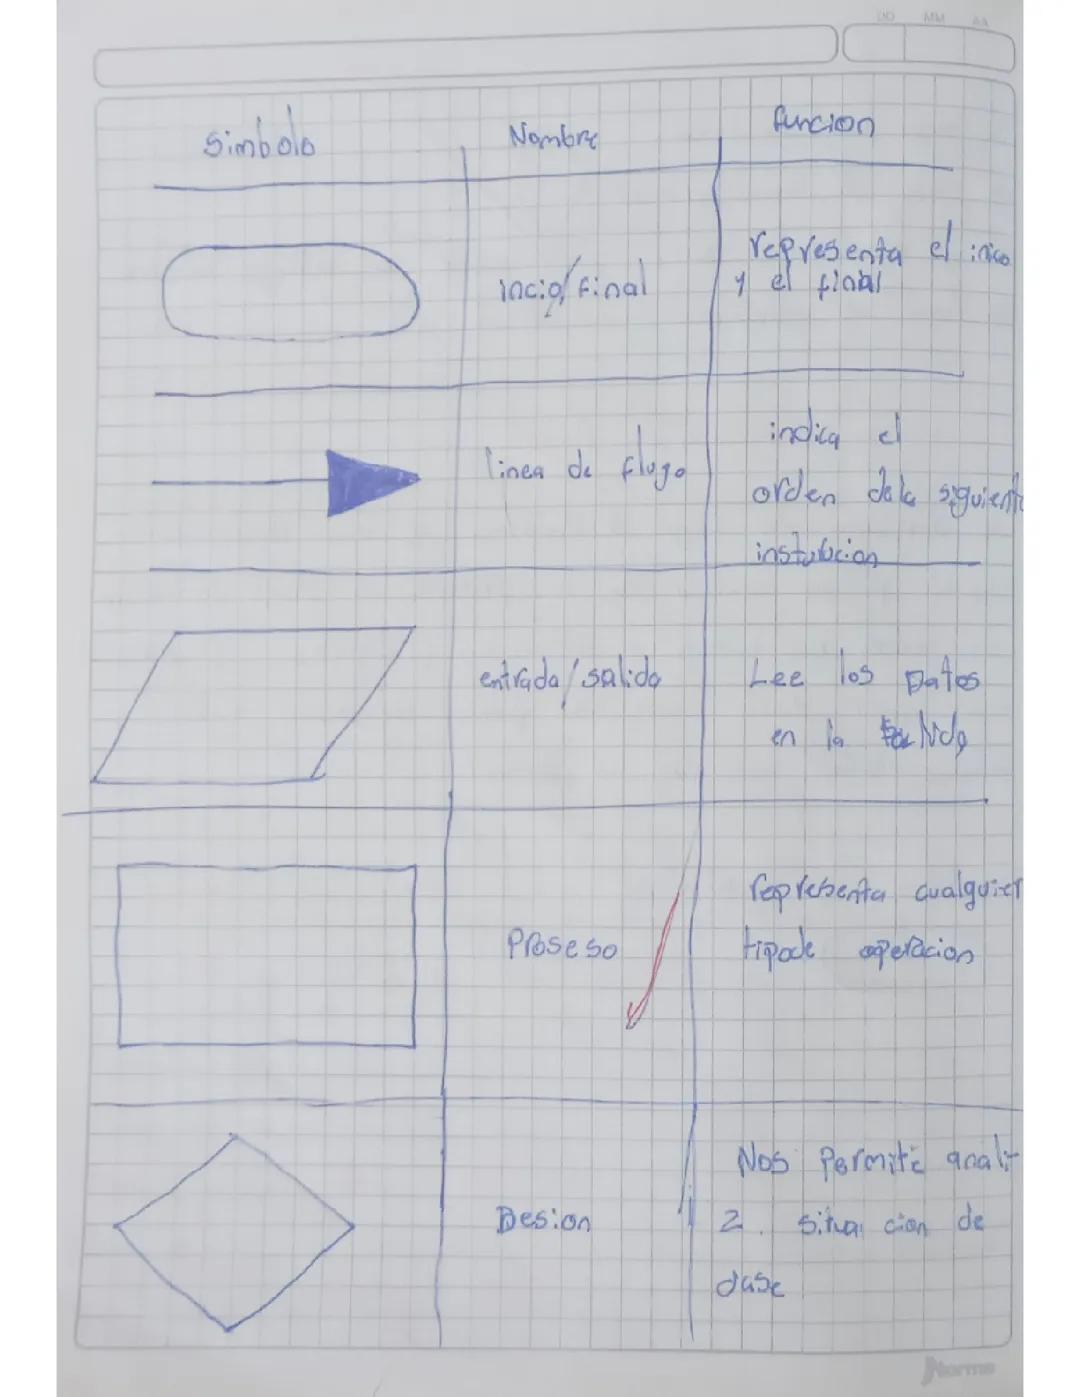 DD MM AA
Simbolo Nombre funcion
incio/final representa el inico
y el final
linea de flugo indica el
orden dela siguiente
entrada/salida Lee los Datos
en la
Proseso representa cualquier
tipode operacion
Desion Nos permite anali
2. situa cion de
Norma